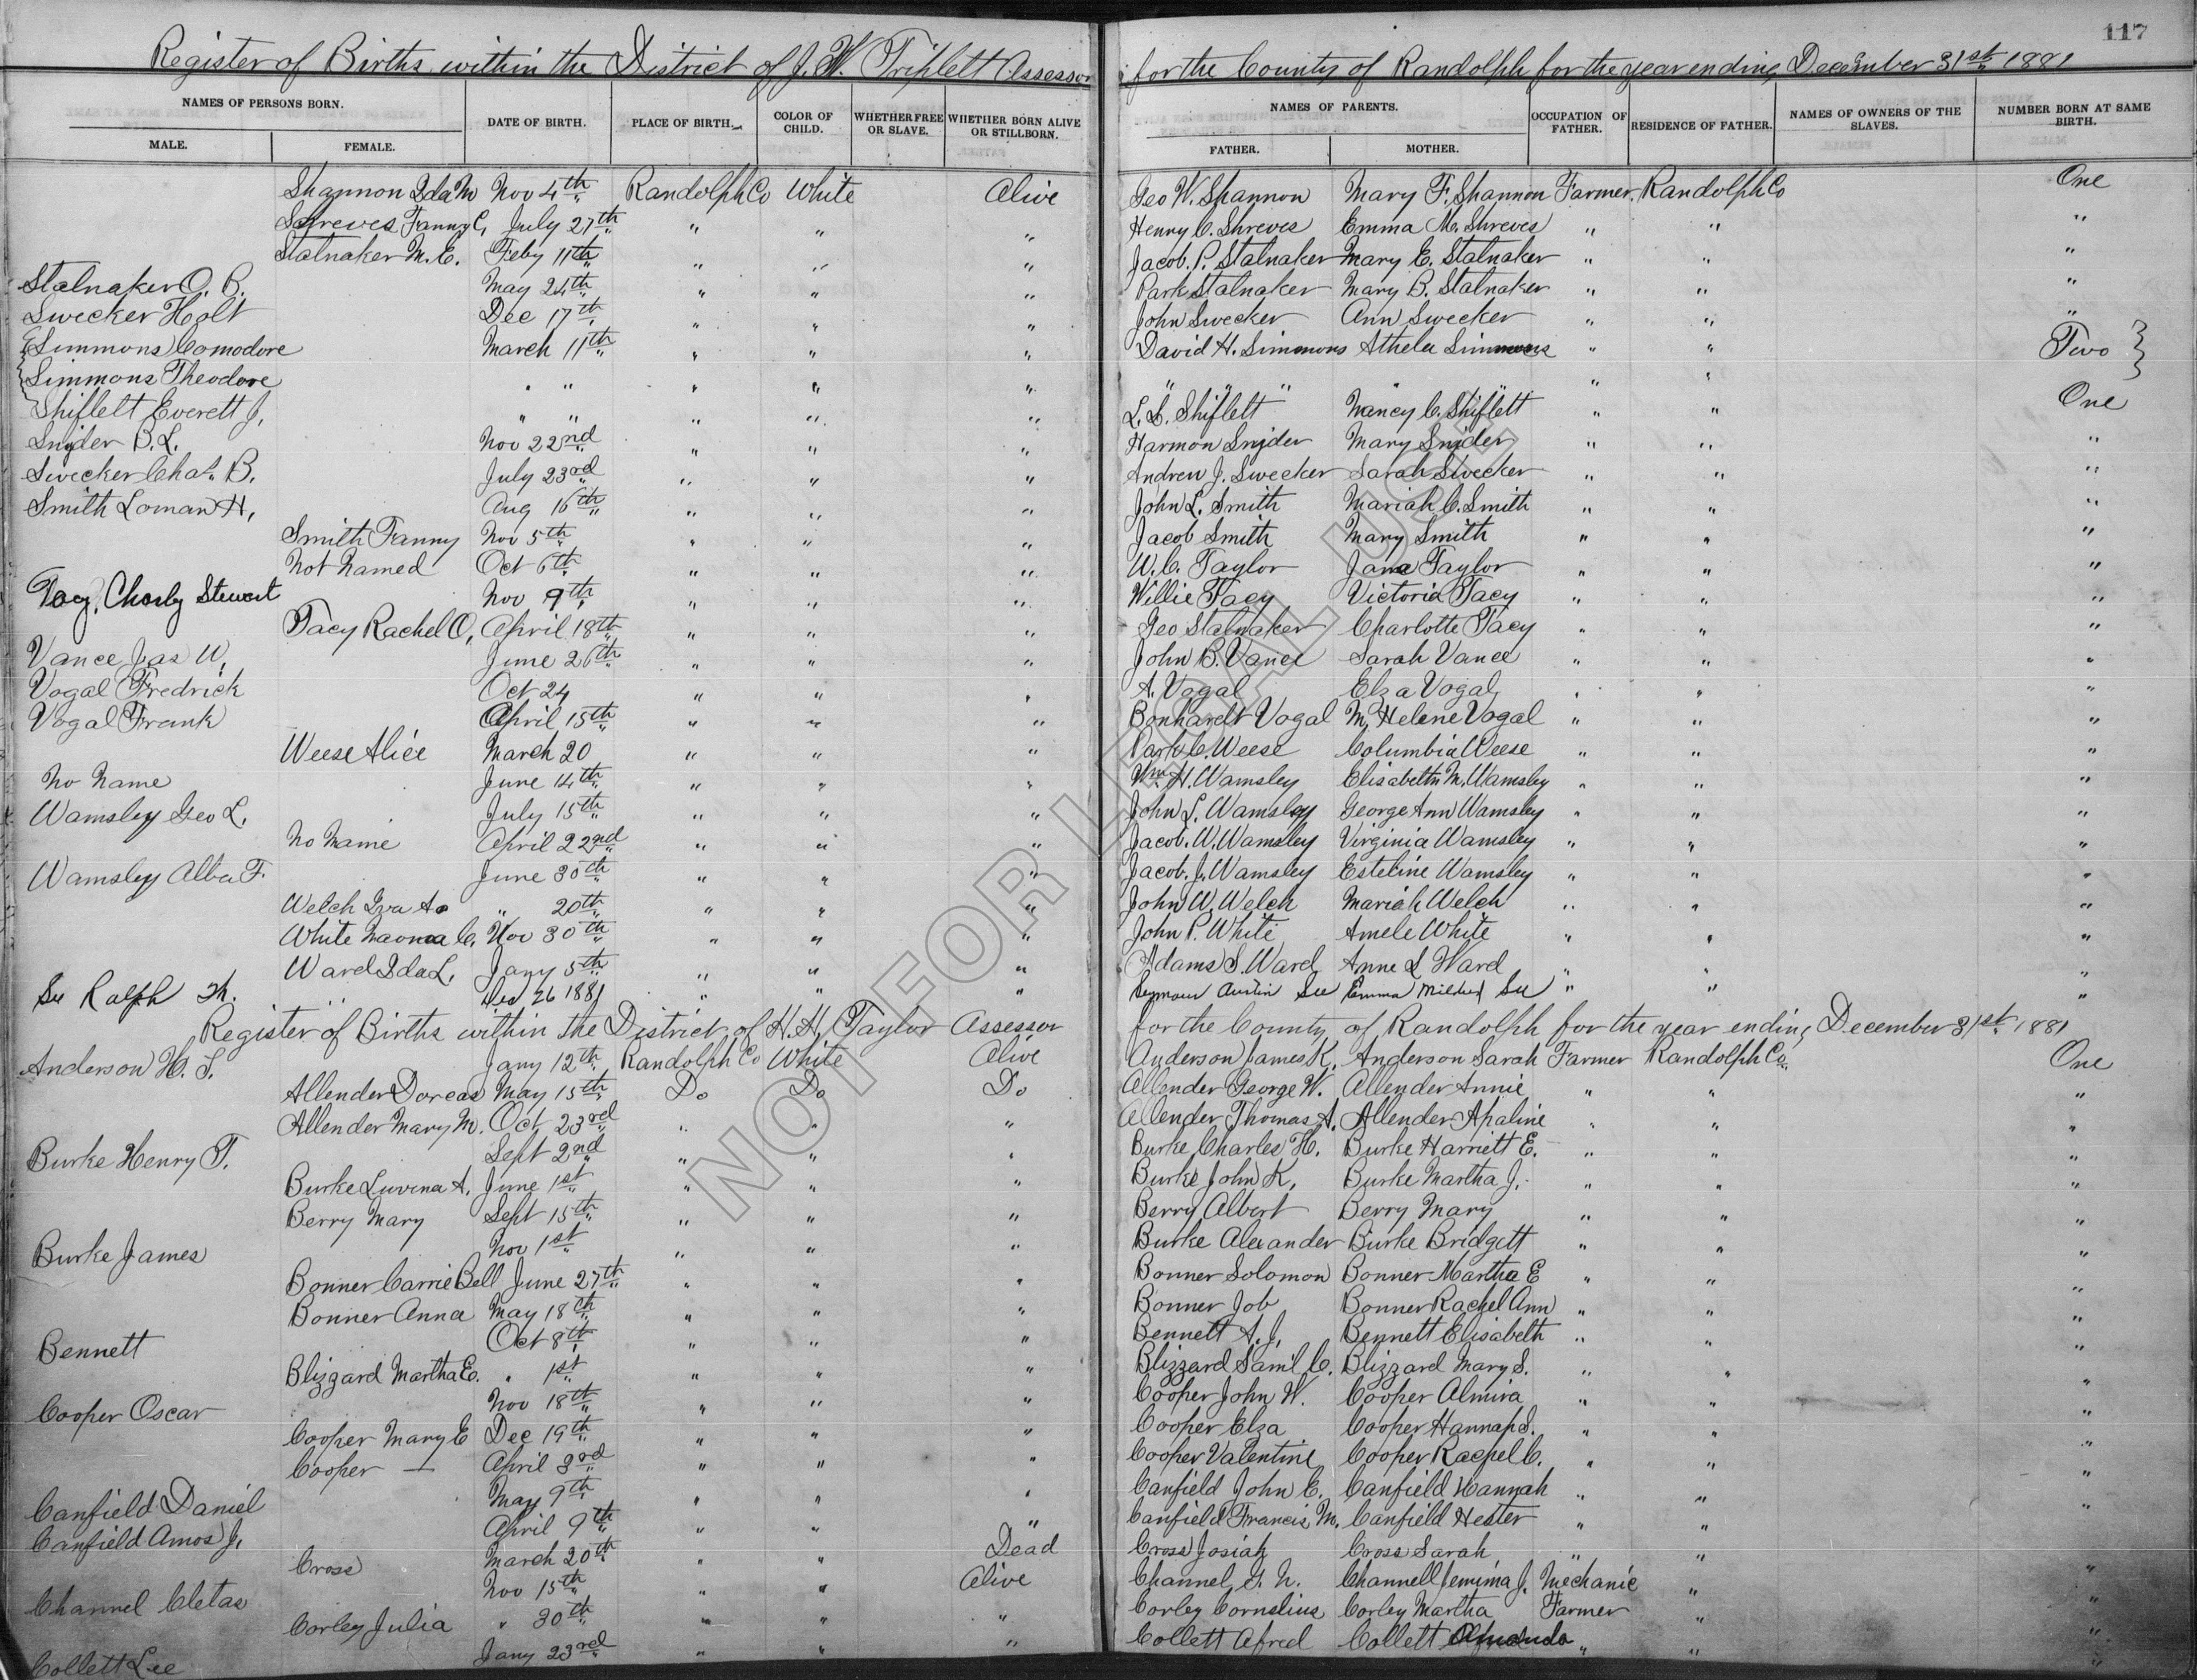 117
Register of Births within the District of J. W. Triplett Assessor for the County of Randolph for the year ending December 31st 1881
NAMES OF PERSONS BORN. DATE OF BIRTH. PLACE OF BIRTH. COLOR OF CHILD. WHETHER FREE OR SLAVE. WHETHER BORN ALIVE OR STILLBORN. NAMES OF PARENTS. OCCUPATION OF FATHER. RESIDENCE OF FATHER. NAMES OF OWNERS OF THE SLAVES. NUMBER BORN AT SAME BIRTH.
MALE. FEMALE. FATHER. MOTHER.
Shannon Ida M Nov 4th Randolph Co White Alive Geo W. Shannon Mary F. Shannon Farmer Randolph Co One
Shreves Fanny C, July 27th " " " Henry C. Shreves Emma M. Shreves " " "
Stalnaker M. E. Feby 11th " " " Jacob. P. Stalnaker Mary E. Stalnaker " " "
Stalnaker O. B. May 24th " " " Park Stalnaker Mary B. Stalnaker " " "
Swecker Holt Dec 17th " " " John Swecker Ann Swecker " " "
Simmons Comodore March 11th " " " David H. Simmons Athela Simmons " " Two
Simmons Theodore " " " " " " " " " " "
Shiflett Everett J, " " " " " L. L. Shiflett Nancy C. Shiflett " " One
Snyder B. L. Nov 22nd " " " Harmon Snyder Mary Snyder " " "
Swecker Chas. B. July 23rd " " " Andrew J. Swecker Sarah Swecker " " "
Smith Loman H, Aug 16th " " " John L. Smith Mariah C. Smith " " "
Smith Fanny Nov 5th " " " Jacob Smith Mary Smith " " "
Not Named Oct 6th " " " W. C. Taylor Jane Taylor " " "
Tacy, Charly Stewart Nov 9th " " " Willie Tacy Victoria Tacy " " "
Tacy Rachel O, April 18th " " " Geo Stalnaker Charlotte Tacy " " "
Vance Jas W, June 26th " " " John B. Vance Sarah Vance " " "
Vogal Fredrick Oct 24 " " " A. Vogal Elza Vogal " " "
Vogal Frank April 15th " " " Bonhardt Vogal M, Helene Vogal " " "
Weese Alice March 20 " " " Park C. Weese Columbia Weese " " "
No Name June 14th " " " Wm H. Wamsley Elisabeth M. Wamsley " " "
Wamsley Geo L. July 15th " " " John L. Wamsley George Ann Wamsley " " "
No Name April 22nd " " " Jacob. W. Wamsley Virginia Wamsley " " "
Wamsley Alba F. June 30th " " " Jacob. J. Wamsley Esteline Wamsley " " "
Welch Iva A. " 20th " " " John W. Welch Mariah Welch " " "
White C. Nov 30th " " " John P. White Amele White " " "
Ward Ida L. Jany 5th " " " Adams S. Ward Anne L Ward " " "
See Ralph Dec 26 1881 " " " Seymour Austin See Emma Mildred See " " "
Register of Births within the District of H. H. Taylor Assessor for the County of Randolph for the year ending December 31st 1881
Anderson H. S. Jany 12th Randolph Co White Alive Anderson James K, Anderson Sarah Farmer Randolph Co. One
Allender Dorcas May 15th Do Do Do Allender George W. Allender Annie " " "
Allender Mary M. Oct 23rd " " " Allender Thomas A. Allender Apaline " " "
Burke Henry T. Sept 2nd " " " Burke Charles H. Burke Harriett E. " " "
Burke Luvena A, June 1st " " " Burke John K, Burke Martha J. " " "
Berry Mary Sept 15th " " " Berry Albert Berry Mary " " "
Burke James Nov 1st " " " Burke Alexander Burke Bridgett " " "
Bonner Carrie Bell June 27th " " " Bonner Solomon Bonner Martha E " " "
Bonner Anna May 18th " " " Bonner Job Bonner Rachel Ann " " "
Bennett Oct 8th " " " Bennett A. J, Bennett Elisabeth " " "
Blizzard Martha E. " 1st " " " Blizzard Saml C. Blizzard Mary S. " " "
Cooper Oscar Nov 18th " " " Cooper John W. Cooper Almira " " "
Cooper Mary E Dec 19th " " " Cooper Elza Cooper Hannah S. " " "
Cooper — April 3rd " " " Cooper Valentine Cooper Rachel C. " " "
Canfield Daniel May 9th " " " Canfield John C. Canfield Hannah " " "
Canfield Amos J, April 9th " " " Canfield Francis M, Canfield Hester " " "
Cross March 20th " " Dead Cross Josiah Cross Sarah " " "
Channel Cletas Nov 15th " " Alive Channel G. N. Channell Jemima J, Mechanic " "
Corley Julia " 30th " " " Corley Cornelius Corley Martha Farmer " "
Collett Lee Jany 23rd " " " Collett Alfred Collett " " "
NOT FOR LEGAL USE